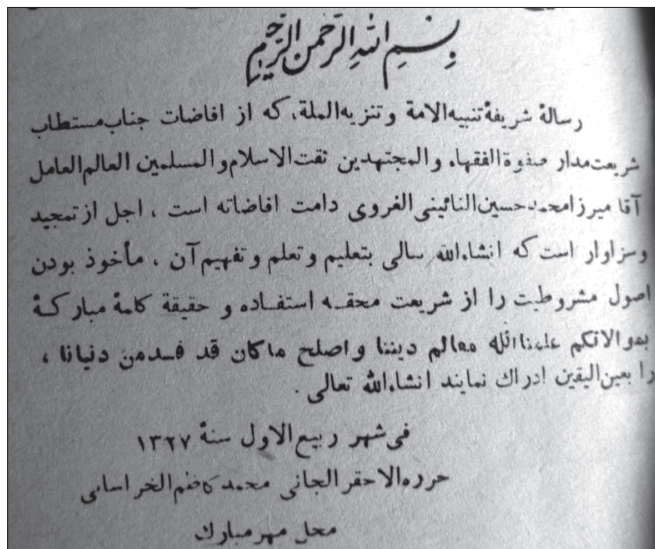 بسم الله الرحمن الرحیم
رسالهٔ شریفهٔ تنبیه‌الامة و تنزیه‌الملة، که از افاضات جناب مستطاب
شریعتمدار صفوة الفقهاء والمجتهدین ثقت‌الاسلام و المسلمین العالم العامل
آقا میرزا محمد حسین النائینی الغروی دامت افاضاته است ، اجل از تمجید
و سزاوار است که انشاءالله تعالی بتعلیم و تعلم و تفهیم آن ، مأخوذ بودن
اصول مشروطیت را از شریعت محقـه استفـاده و حقیقة کلمهٔ مبارکـهٔ
بموالاتکم علمناالله معالم دیننا و اصلح ماکان قد فسدمن دنیانا ،
را بعین‌الیقین ادراك نمایند انشاءالله تعالی .
فی شهر ربیع الاول سنهٔ ۱۳۲۷
حرره الاحقر الجانی محمد کاظم الخراسانی
محل مهر مبارك